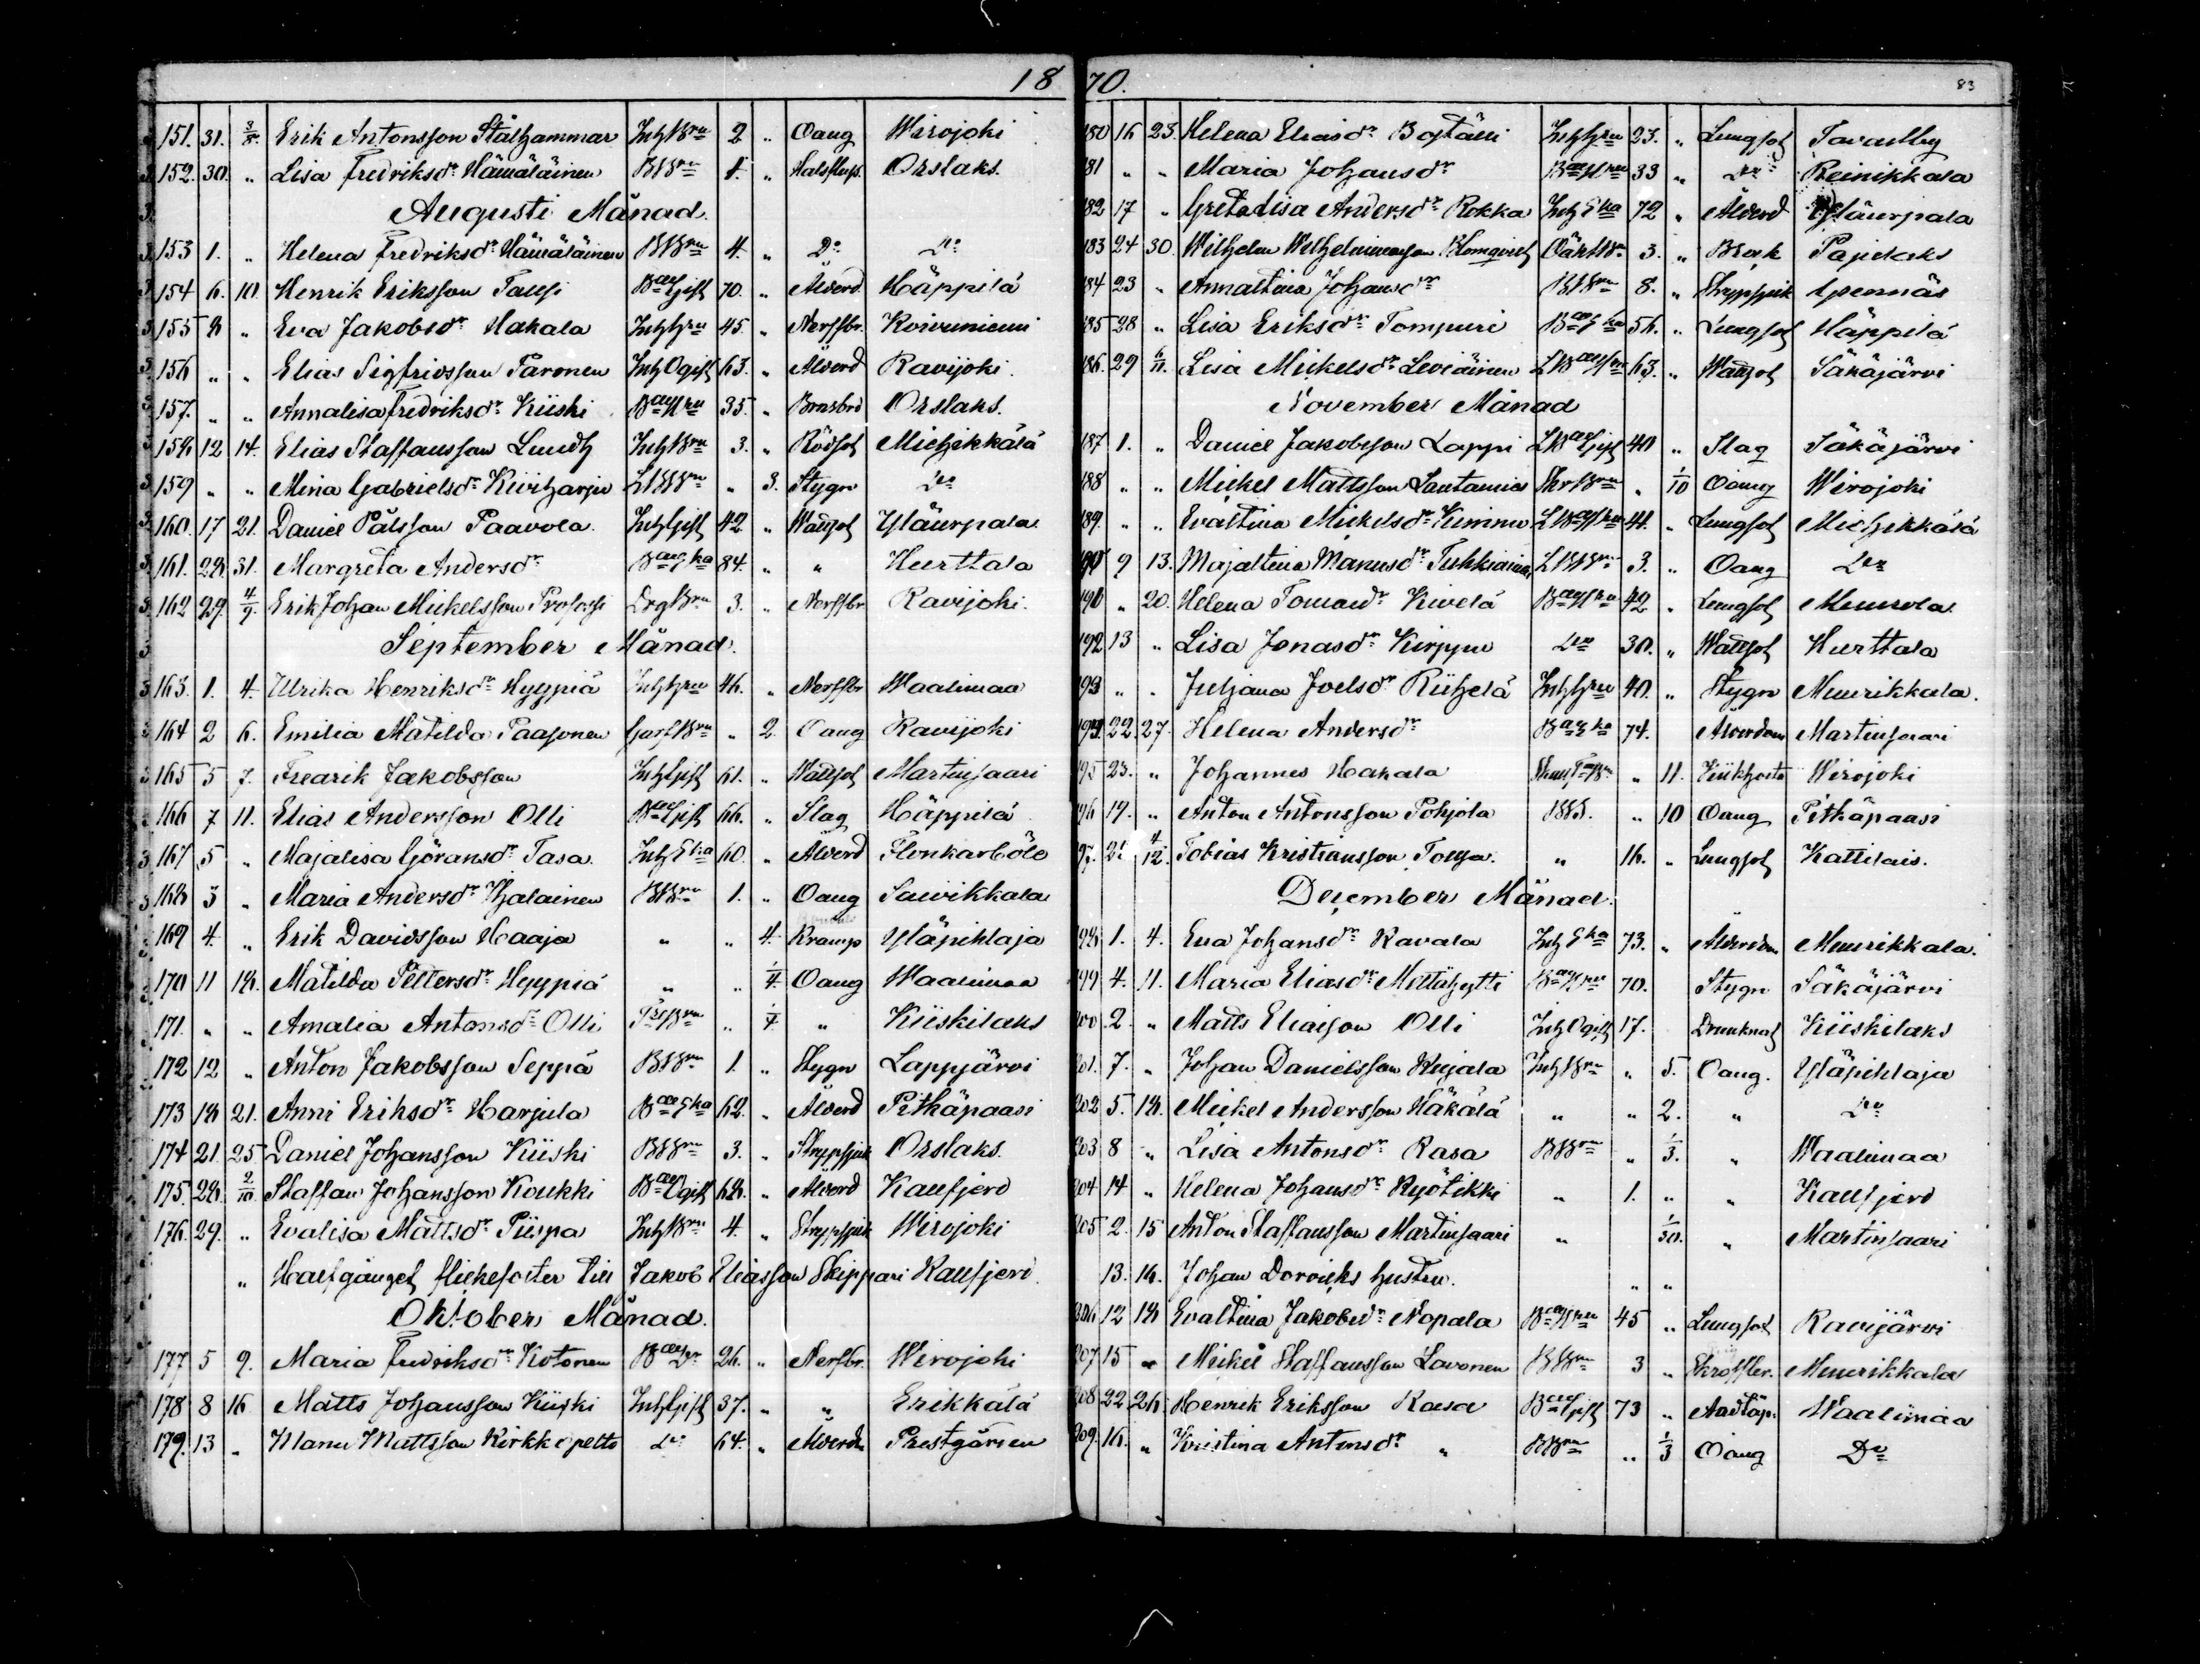 1870.
83
151. 31. 3/8. Erik Antonsson Stålhammar Inh Brn 2 " Oang Wirojoki
152. 30. " Lisa Fredriksdr Hämäläinen BBrn 1. " Halsfluss. Orslaks.
Augusti Månad.
153 1. " Helena Fredriksdr Hämäläinen BBrn 4. " Do Do
154 6. 10. Henrik Eriksson Tausi Gift 70. " Ålderd Häppilä
155 8 " Eva Jakobsdr Hakala Inh Hru 45. " Nerffbr. Koivuniemi
156 " " Elias Sigfridsson Paronen Inh Ogift 63. " Ålderd Ravijoki.
157. " " Annalisa Fredriksdr Kiiski 35. " Orslaks.
158 12 14. Elias Staffansson Lundh Inh Brn 3. " Rödsot Miehikkälä
159 " " Mina Gabrielsdr Kiviharju " 3. Stygn Do
160. 17 21. Daniel Pålsson Paavola. Inh Gift 42. " Wattsot Yläurpala
161. 28. 31. Margreta Andersdr Eka 84. " " Hurttala
162 29. 4/9. Erik Johan Mickelsson Drg Brn 3. " Nerffbr Ravijoki.
September Månad.
163. 1. 4. Ulrika Henriksdr Hyppiä Inh Hru 46. " Nerffbr Waalimaa
164 2 6. Emilia Matilda Paasonen Brn " 2. Oang Ravijoki
165 5 7. Fredrik Jakobsson Inh Gift 61. " Wattsot Martinsaari
166 7 11. Elias Andersson Olli Gift 66. " Slag Häppilä
167 5 " Majalisa Göransdr Tasa. Inh Eka 60. " Ålderd Flonkarböle
168 3 " Maria Andersdr BBrn 1. " Oang Saivikkala
169 4. " Erik Davidsson Haaja " " 4. Kramp Yläpihlaja
170 11 18. Matilda Pettersdr Hyyppiä " " 1/4. Oang Waalimaa
171. " " Amalia Antonsdr Olli " 1/4. " Kiiskilaks
172 12 " Anton Jakobsson Seppä BBrn 1. " Stygn Lappjärvi
173 18 21. Anni Eriksdr Harjula Eka 62. " Ålderd Pitkäpaasi
174 21. 25 Daniel Johansson Kiiski BBrn 3. " Strypsjuk Orslaks.
175. 28. 2/10. Staffan Johansson Koukki Ogift 68. " Ålderd Kallfjerd
176. 29. " Evalisa Mattsdr Piispa Inh Brn 4. " Strypsjuk Wirojoki
" Halfgånget flickefoster till Jakob Eliasson Skippari Kallfjerd.
Oktober Månad.
177 5 9. Maria Fredriksdr Kotonen 26. " Nerffbr. Wirojoki
178 8 16 Matts Johansson Kiiski Inh Gift 37. " " Erikkälä
179. 13 " Manu Mattsson Kirkkopelto Do 64. " Ålderdn Prestgården
180 16 23. Helena Eliasdr Inh Hru 23. " Lungsot Tavastby
181 " " Maria Johansdr 33 " Do Reinikkala
182 17 " Greta Lisa Andersdr Rokka Inh Eka 72 " Ålderd Yläurpala
183 24 30. Wilhelm Wilhelmsson Blomqvist 3. " Bråck Papilaks
184 23 " Annastina Johansdr BBrn 8. " Strypsjuk Spennäs
185 28 " Lisa Eriksdr Tompuri Eka 56. " Lungsot Häppilä
186. 29 6/11. Lisa Mickelsdr Leviäinen 63. " Wattsot Säkäjärvi
November Månad
187 1. " Daniel Jakobsson Lappi Gift 40 " Slag Säkäjärvi
188 " " Mickel Mattsson Brn " 1/10 Oang Wirojoki
189. " " Evastina Mickelsdr Kimmu 41. " Lungsot Miehikkälä
190 9 13. Majastina Manusdr 3. " Oang Do
191 " 20. Helena Tomasdr Kivelä 42 " Lungsot
192 13 " Lisa Jonasdr Kirppu Do 30. " Wattsot Hurttala
193 " " Juliana Joelsdr Riihelä Inh Hru 40. " Stygn Muurikkala.
194 22. 27. Helena Andersdr Eka 74. Ålderdom Martinsaari
195 23. " Johannes Hakala " 11. Kikhosta Wirojoki
196 19. " Anton Antonsson Pohjola BBB. " 10 Oang Pitkäpaasi
97. 4/12. Tobias Kristiansson " 16. " Lungsot Kattilais.
December Månad.
198. 1. 4. Eva Johansdr Ravala Inh Eka 73. " Ålderdom Muurikkala.
199 4. 11. Maria Eliasdr Mettähytti 70. Stygn Säkäjärvi
200 2. " Matts Eliasson Olli Inh Ogift 17. Drunknat Kiiskilaks
201. 7. " Johan Danielsson Kujala Inh Brn " 5. Oang. Yläpihlaja
202 5. 18. Mickel Andersson Häkälä " " 2. " Do
203 8 " Lisa Antonsdr Rasa BBrn " 1/3. " Waalimaa
204 14 " Helena Johansdr Ryötikki " 1. " " Kallfjerd
205 2. 15 Anton Staffansson Martinsaari " 1/30. " Martinsaari
13. 16. Johan hustru. " "
206 12 18 Evastina Jakobsdr Nopala 45 " Lungsot Ravijärvi
207 15 " Mickel Staffansson Lavonen BBrn 3 " Muurikkala
208 22 26 Henrik Eriksson Rasa Gift 73 " Andtäp. Waalimaa
209. 16. " Kristina Antonsdr " BBrn " 1/3 Oang Do